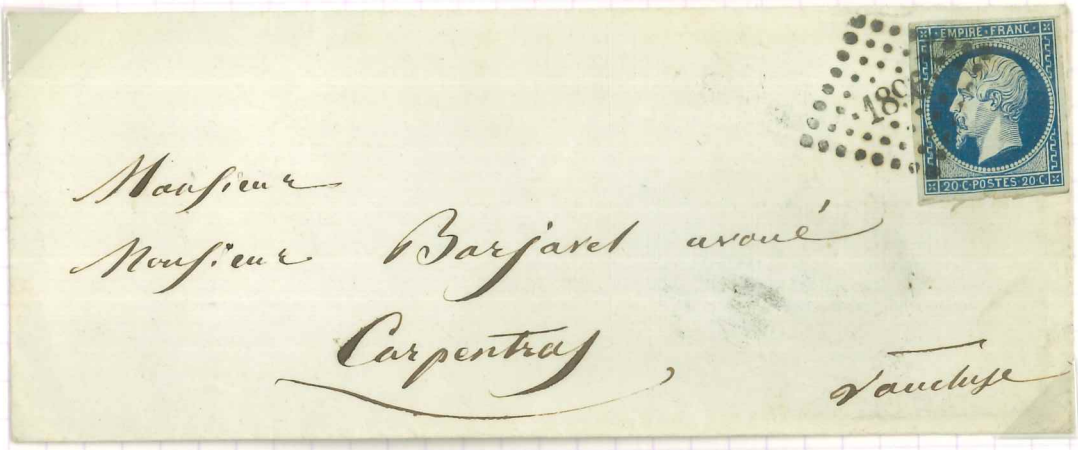 EMPIRE·FRANC·
1896
20 C·POSTES·20 C
Monsieur
Monsieur Barjavel avoué
Carpentras
Vaucluse